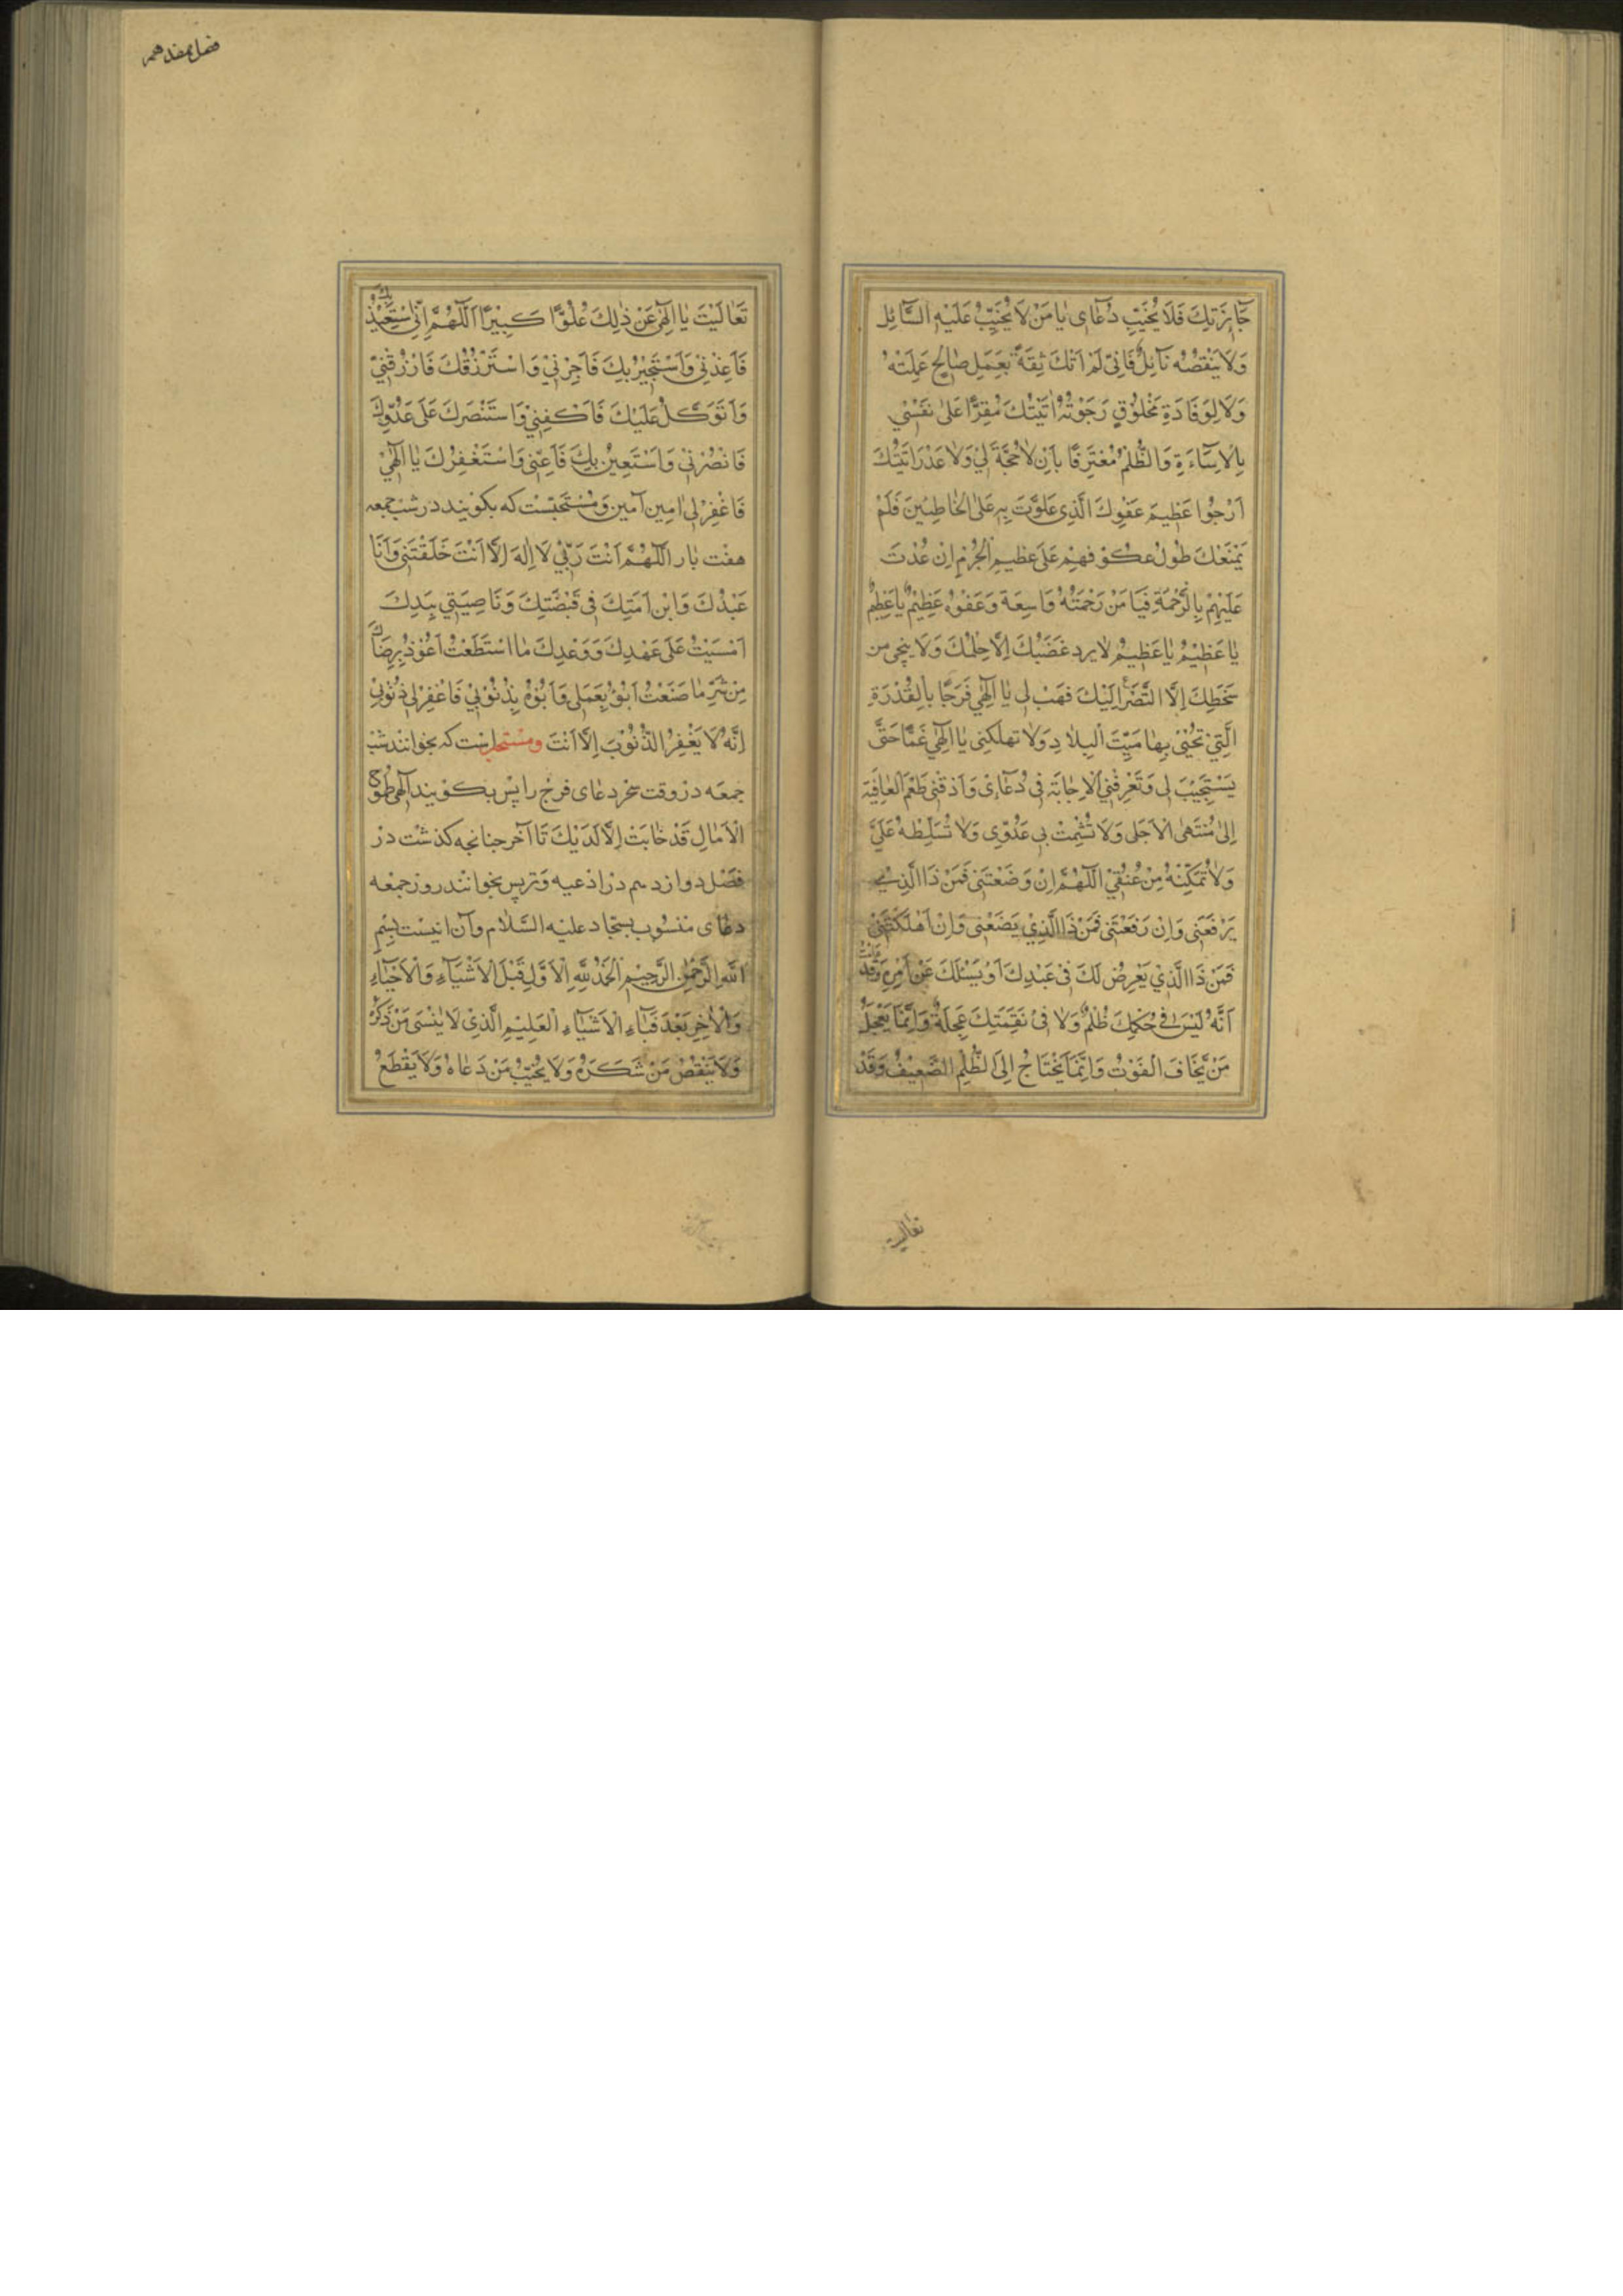 جَآئِزَتِكَ فَلَا يُخَيِّبِ دُعَاى يَا مَنْ لَا يُخَيَّبُ عَلَيْهِ السَّآئِلُ
وَلَا يَنْقُصُهُ نَآئِلٌ فَاِنِّى لَمْ اٰتِكَ ثِقَةً بِعَمَلٍ صٰالِحٍ عَمِلْتُهُ
وَلَا لِوِفَادَةِ مَخْلُوْقٍ رَجَوْتُهُ اَتَيْتُكَ مُقِرًّا عَلٰى نَفْسْي
بِالْاِسَآءَةِ وَالظُّلْمِ مُعْتَرِفًا بِاَنْ لَا حُجَّةَ لِيْ وَلَا عُذْرَ اَتَيْتُكَ
اَرْجُوا عَظِيمَ عَفْوِكَ الَّذِى عَلَوْتَ بِهِ عَلَى الْخَاطِئِينَ فَلَمْ
يَمْنَعْكَ طُوْلُ عُكُوْفِهِمْ عَلَى عَظِيمِ الْجُرْمِ اِنْ عُدْتَ
عَلَيْهِمْ بِالرَّحْمَةِ فَيَا مَنْ رَحْمَتُهُ وَاسِعَة وَعَفْوُهُ عَظِيْمٌ يَا عَظِيْمُ
يَا عَظِيْمُ يَا عَظِيْمُ لَا يرد غَضَبَكَ اِلَّا حِلْمُكَ وَلَا ينجى من
سَخَطِكَ اِلَّا التَّضَرُّع اِلَيْكَ فَهَبْ لِى يَا اِلٰهِي فَرَجًا بِالْقُدْرَةِ
الَّتِيْ تُحْيْى بِهَا مَيِّتَ الْبِلَادِ وَلَا تهلكنِى يَا اِلٰهِى غَمًّا حَتّٰى
يَسْتَجِيْبَ لِى وَتَعْرِفَنِي الْاِجَابَةَ فِى دُعَآئِى وَاَذِقْنِى طَعْمَ الْعَافِيَة
اِلٰى مُنْتَهٰى الْاَجَلى وَلَا تُشْمِتْ بِى عَدُوِّى وَلَا تُسَلِّطْهُ عَلَيَّ
وَلَا تُمَكِّنْهُ مِنْ عُنُقِيْ اَللّٰهُمَّ اِنْ وَضَعْتَنِى فَمَنْ ذَا الَّذِىْ
يَرْفَعُنِى وَاِنْ رَفَعْتَنِى فَمَنْ ذَا الَّذِيْ يَضَعُنِى وَاِنْ اَهْلَكْتَنِىْ
فَمَنْ ذَا الَّذِيْ يَعْرِضُ لَكَ فِىْ عَبْدِكَ اَوْ يَسْئَلُكَ عَنْ اَمْرِهِ وَقَدْ عَلِمْتُ
اَنَّهُ لَيْسَ فِى حُكْمِكَ ظُلْمٌ وَلَا فِىْ نَقِمَتِكَ عَجَلَةٌ وَاِنَّمَا يَعْجَلُ
مَنْ يَّخَافَ الْفَوْتَ وَاِنَّمَا يَحْتَاجُ اِلَى الظُّلْمِ الضَّعِيْفُ وَقَدْ
تعاليت
فصل هفدهم
تَعَالَيْتَ يَا اِلٰهِى عَنْ ذٰلِكَ عُلُوًّا كَبِيْرًا اَللّٰهُمَّ اِنِّى اسْتَعِيْذُ بِكَ
فَاَعِذْنِىْ وَاَسْتَجِيْرُ بِكَ فَاَجِرْنِيْ وَاسْتَرْزُقُكَ فَارْزُقْنِيْ
وَاَتَوَكَّلُ عَلَيْكَ فَاكْفِنِيْ وَاسْتَنْصِرُكَ عَلَى عَدُوِّكَ
فَانْصُرْنِيْ وَاَسْتَعِيْنُ بِكَ فَاَعِنِّى وَاَسْتَغْفِرُكَ يَا اِلٰهِيْ
فَاغْفِرْلِى اٰمِين آمِين وَمُسْتَحَبّسْت كه بكويند در شب جمعه
هفت بار اَللّٰهُمَّ اَنْتَ رَبِّيْ لَا اِلٰهَ اِلَّا اَنْتَ خَلَقْتَنِى وَاَنَا
عَبْدُكَ وَابْن اَمَتِكَ فِى قَبْضَتِكَ وَنَاصِيَتِي بِيَدِكَ
اَمْسَيْتُ عَلَى عَهْدِكَ وَوَعْدِكَ مَا اسْتَطَعْتُ اَعُوْذُ بِرِضَاكَ
مِنْ شَرِّ مَا صَنَعْتُ اَبُوْءُ بِعَمَلِى وَاَبُوْءُ بِذُنُوْبِيْ فَاغْفِرْلِى ذُنُوْبِىْ
اِنَّهُ لَا يَغْفِرُ الذُّنُوْبَ اِلَّا اَنْتَ ومستحبست كه بخوانند شب
جمعه در وقت سَحَر دعاى فرج را پس بكويند اِلٰهِى طُمُوْحُ
الْاٰمَالِ قَدْ خَابَتْ اِلَّا لَدَيْكَ تا آخر جنانجه كذشت در
فصل دوازدهم در ادعيه وَترپس بخوانند روز جمعه
دعاى منسوب بسجاد عليه السّلام وآن اينست بِسْمِ
اللهِ الرَّحْمٰنِ الرَّحِيْمِ اَلْحَمْدُ لِلّٰهِ الْاَوَّلِ قَبْلَ الْاَشْيَآءِ وَالْاَحْيَآءِ
وَالْاٰخِرِ بَعْدَ فَنَآءِ الْاَشْيَآءِ الْعَلِيْمِ الَّذِيْ لَا يَنْسَى مَنْ ذَكَرَهُ
وَلَا يَنْقُصُ مَنْ شَكَرَهُ وَلَا يُخَيِّبُ مَنْ دَعَاهُ وَلَا يَقْطَعُ